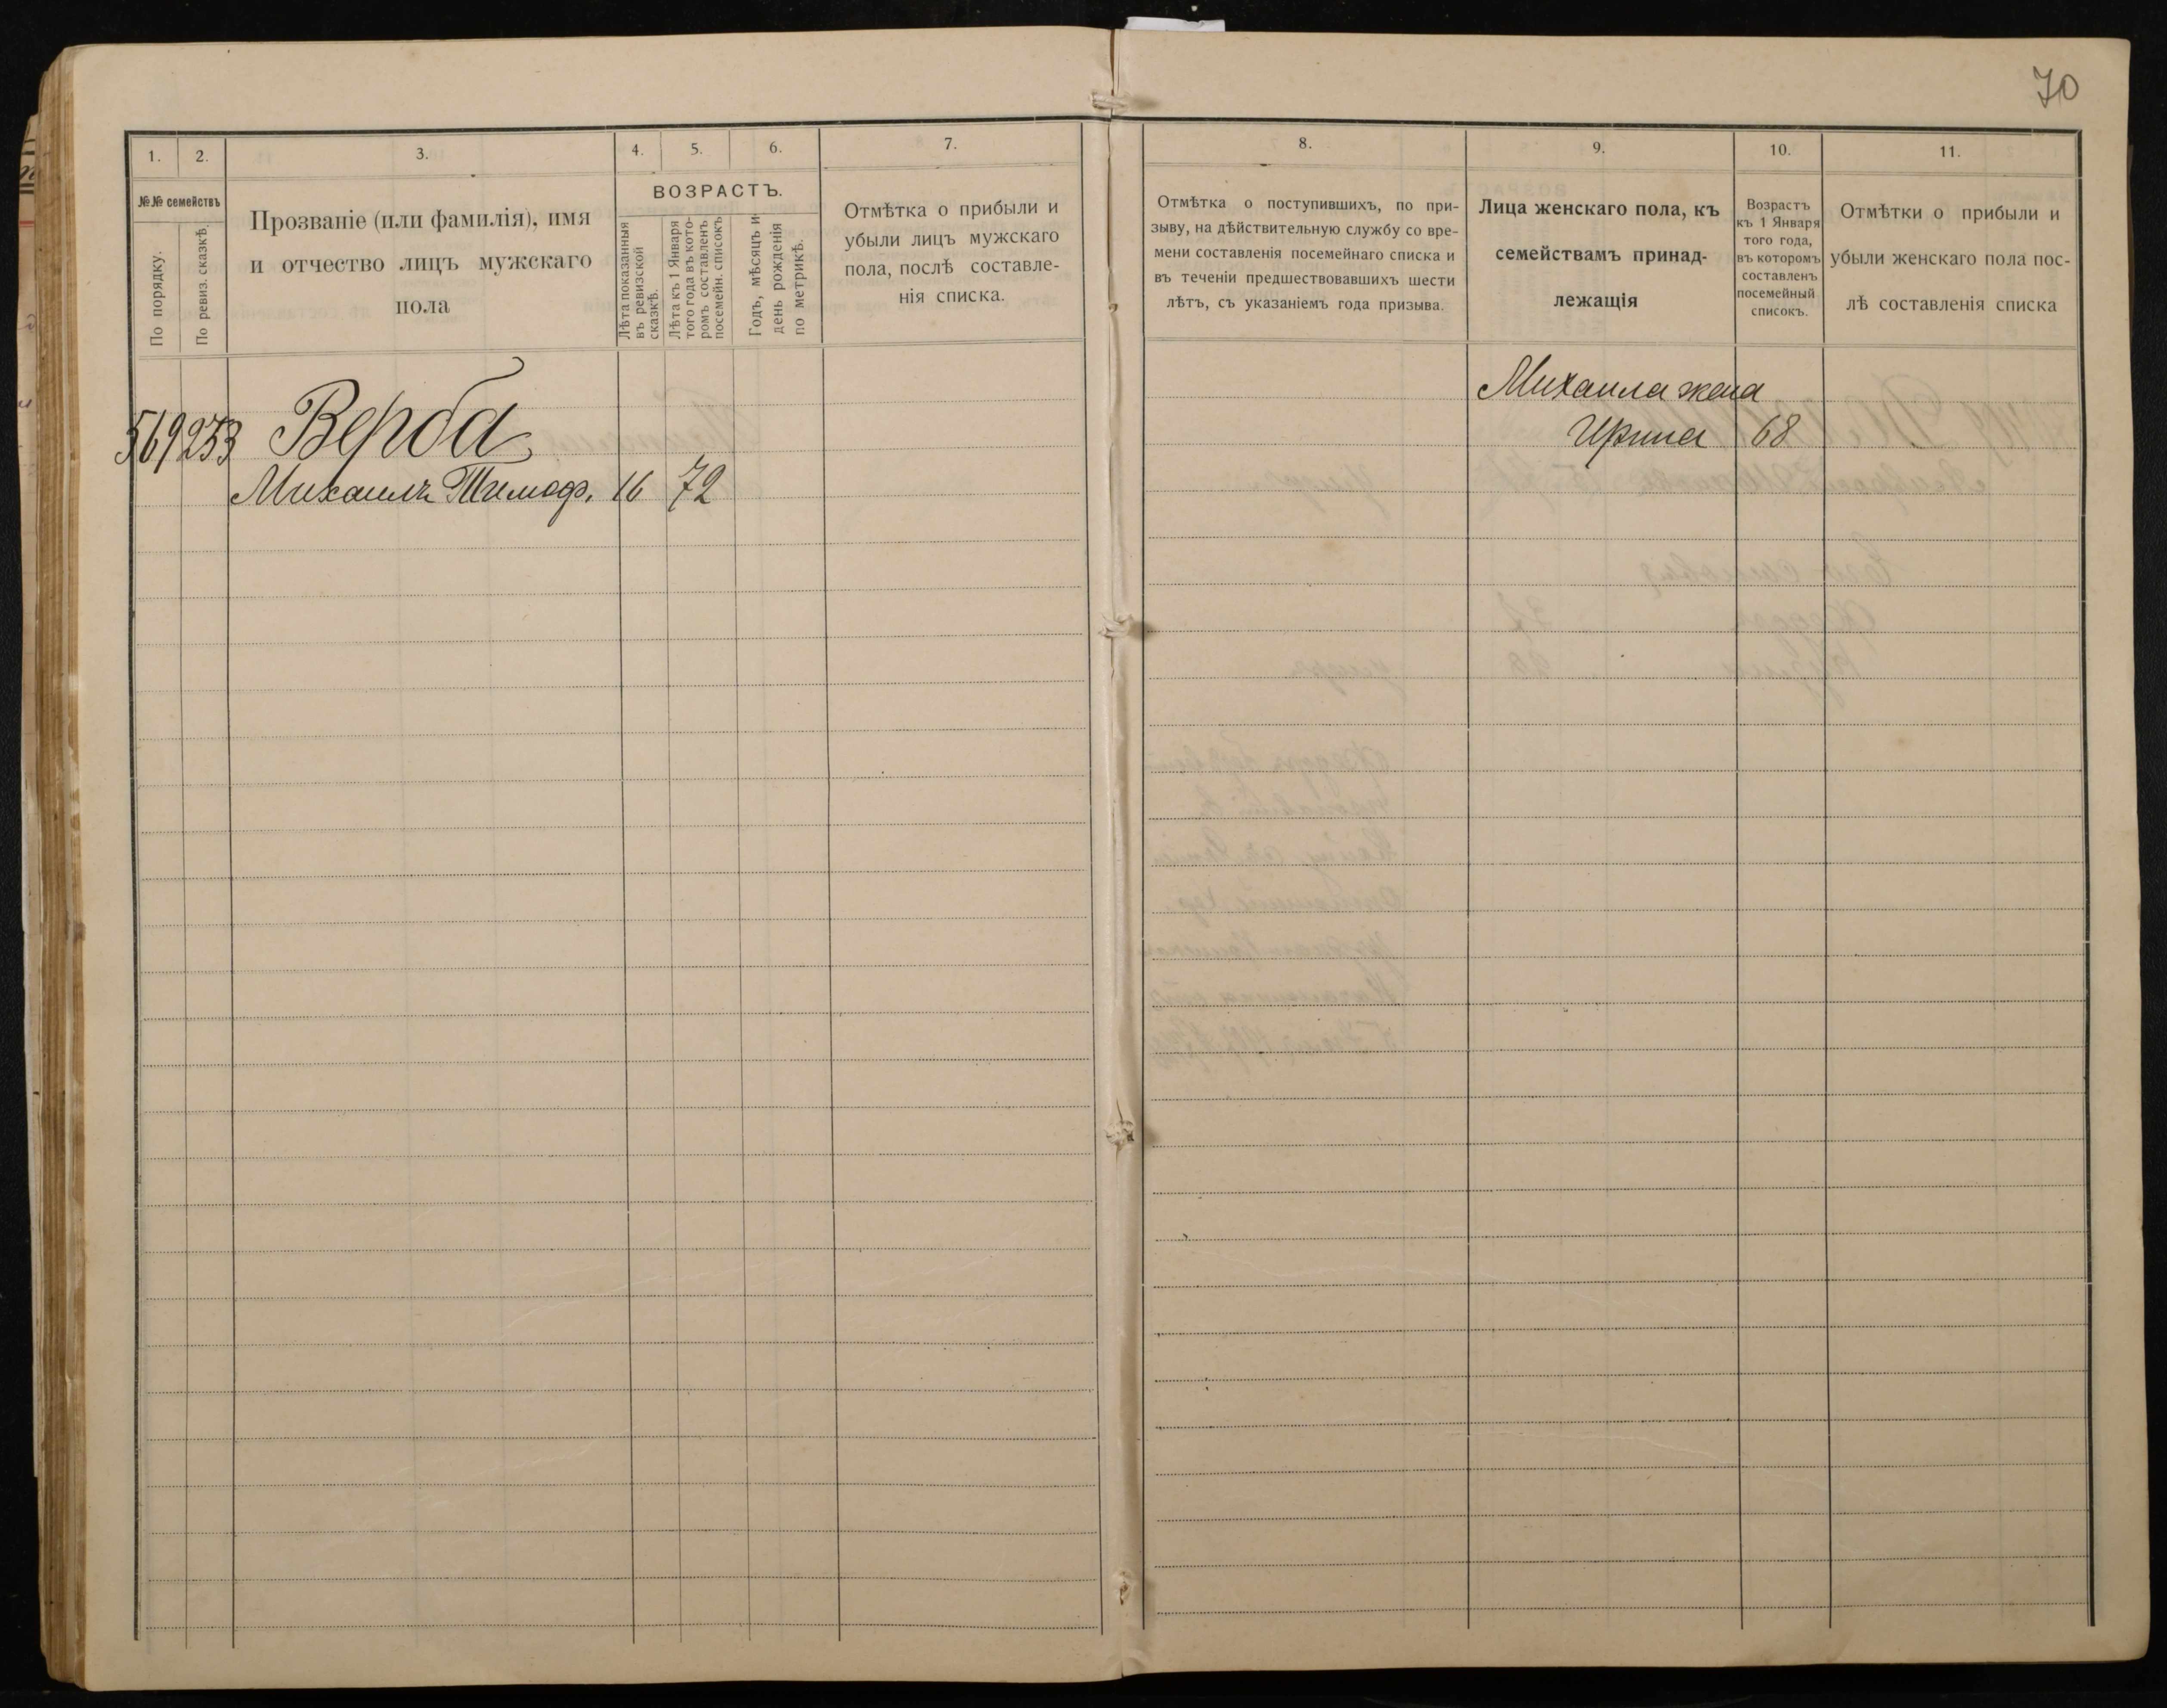 70
1. 2. 3. 4. 5. 6. 7.
№№ семействъ
По порядку.
По ревиз. сказкѣ.
Прозваніе (или фамилія), имя
и отчество лицъ мужскаго
пола
ВОЗРАСТЪ.
Лѣта показанныя
въ ревизской
сказкѣ.
Лѣта къ 1 Января
того года въ кото-
ромъ составленъ
посемейн. списокъ
Годъ, мѣсяцъ и
день рожденія
по метрикѣ.
Отмѣтка о прибыли и
убыли лицъ мужскаго
пола, послѣ составле-
нія списка.
569 233 Верба
Михаилъ Тимоф. 16 72
8. 9. 10. 11.
Отмѣтка о поступившихъ, по при-
зыву, на дѣйствительную службу со вре-
мени составленія посемейнаго списка и
въ теченіи предшествовавшихъ шести
лѣтъ, съ указаніемъ года призыва.
Лица женскаго пола, къ
семействамъ принад-
лежащія
Возрастъ
къ 1 Января
того года,
въ которомъ
составленъ
посемейный
списокъ.
Отмѣтки о прибыли и
убыли женскаго пола пос-
лѣ составленія списка
Михаила жена
Ирина 68